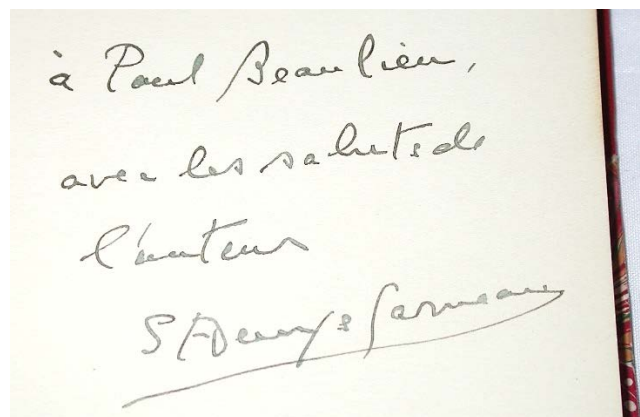 à Paul Beaulieu,
avec les saluts de
l'auteur
St-Denys Garneau